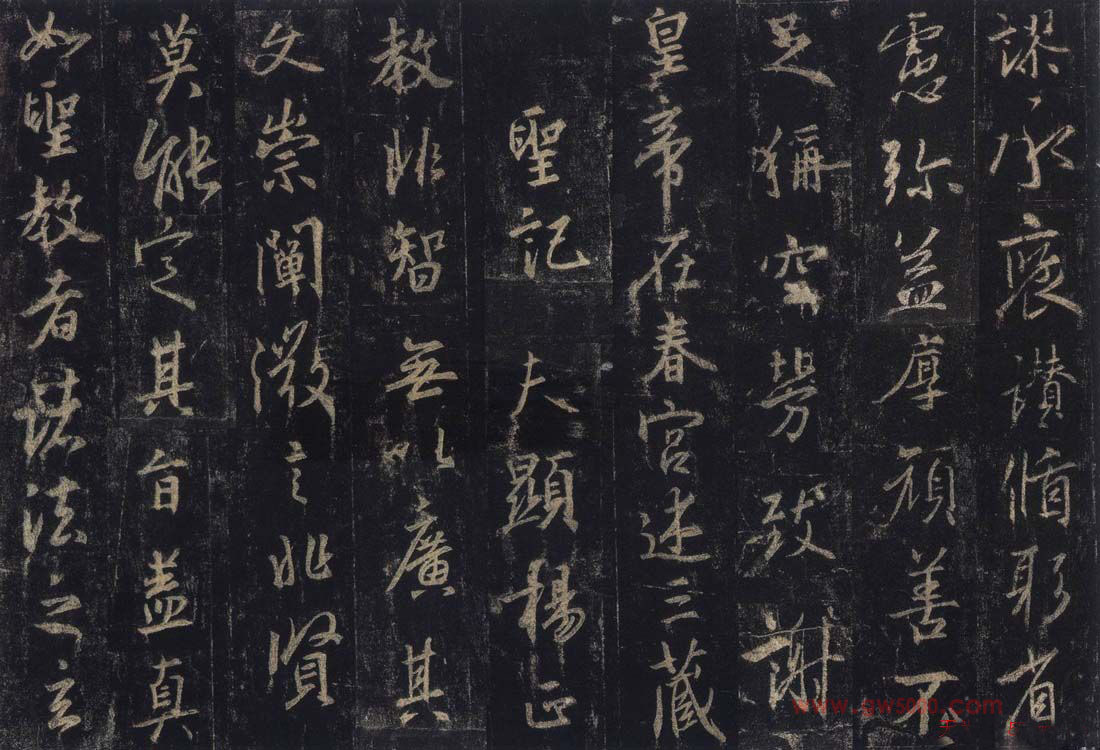 謬承褒讚循躬省
慮弥益厚顔善不
足稱空勞致謝
皇帝在春宮述三藏
聖記 夫顯楊正
教非智無以廣其
文崇闡微言非賢
莫能定其旨盖真
如聖教者諸法之玄
www.gwsoto.com